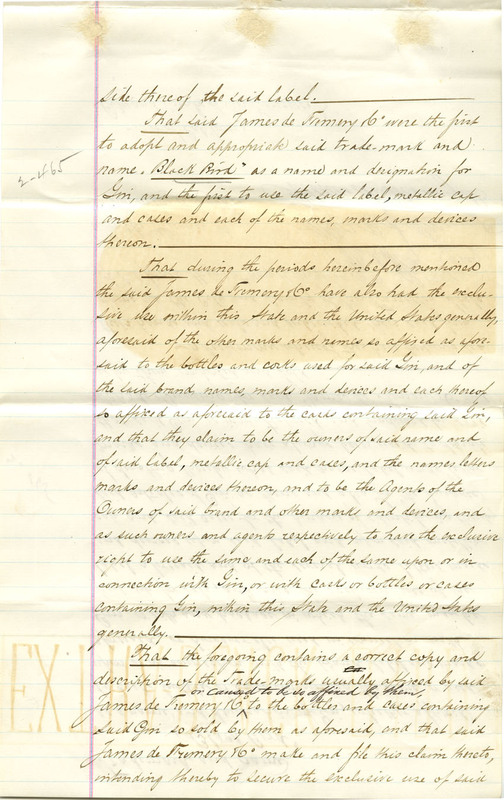 side thereof the said label.
That said James de Fremery & Co were the first
to adopt and appropriate said trade-mark and
name, "Black Bird" as a name and designation for
Gin, and the first to use the said label, metallic cap
and cases and each of the names, marks and devices
thereon.
2-465
That during the periods hereinbefore mentioned
the said James de Fremery & Co have also had the exclu-
sive use within this State and the United States generally,
aforesaid of the other marks and names so affixed as afore-
said to the bottles and corks used for said Gin, and of
the said brand names, marks and devices and each thereof
so affixed as aforesaid to the cases containing said Gin,
and that they claim to be the owners of said name and
of said label, metallic cap and cases, and the names letters
marks and devices thereon, and to be the Agents of the
Owners of said brand and other marks and devices, and
as such owners and agents respectively to have the exclusive
right to use the same and each of the same upon or in
connection with Gin, or with casks or bottles or cases
containing Gin, within this State and the United States
generally.
That the foregoing contains a correct copy and
description of the Trade-marks usually affixed by said
or caused to be so affixed by them,
James de Fremery & Co to the bottles and cases containing
said Gin so sold by them as aforesaid, and that said
James de Fremery & Co make and file this claim thereto,
intending thereby to secure the exclusive use of said